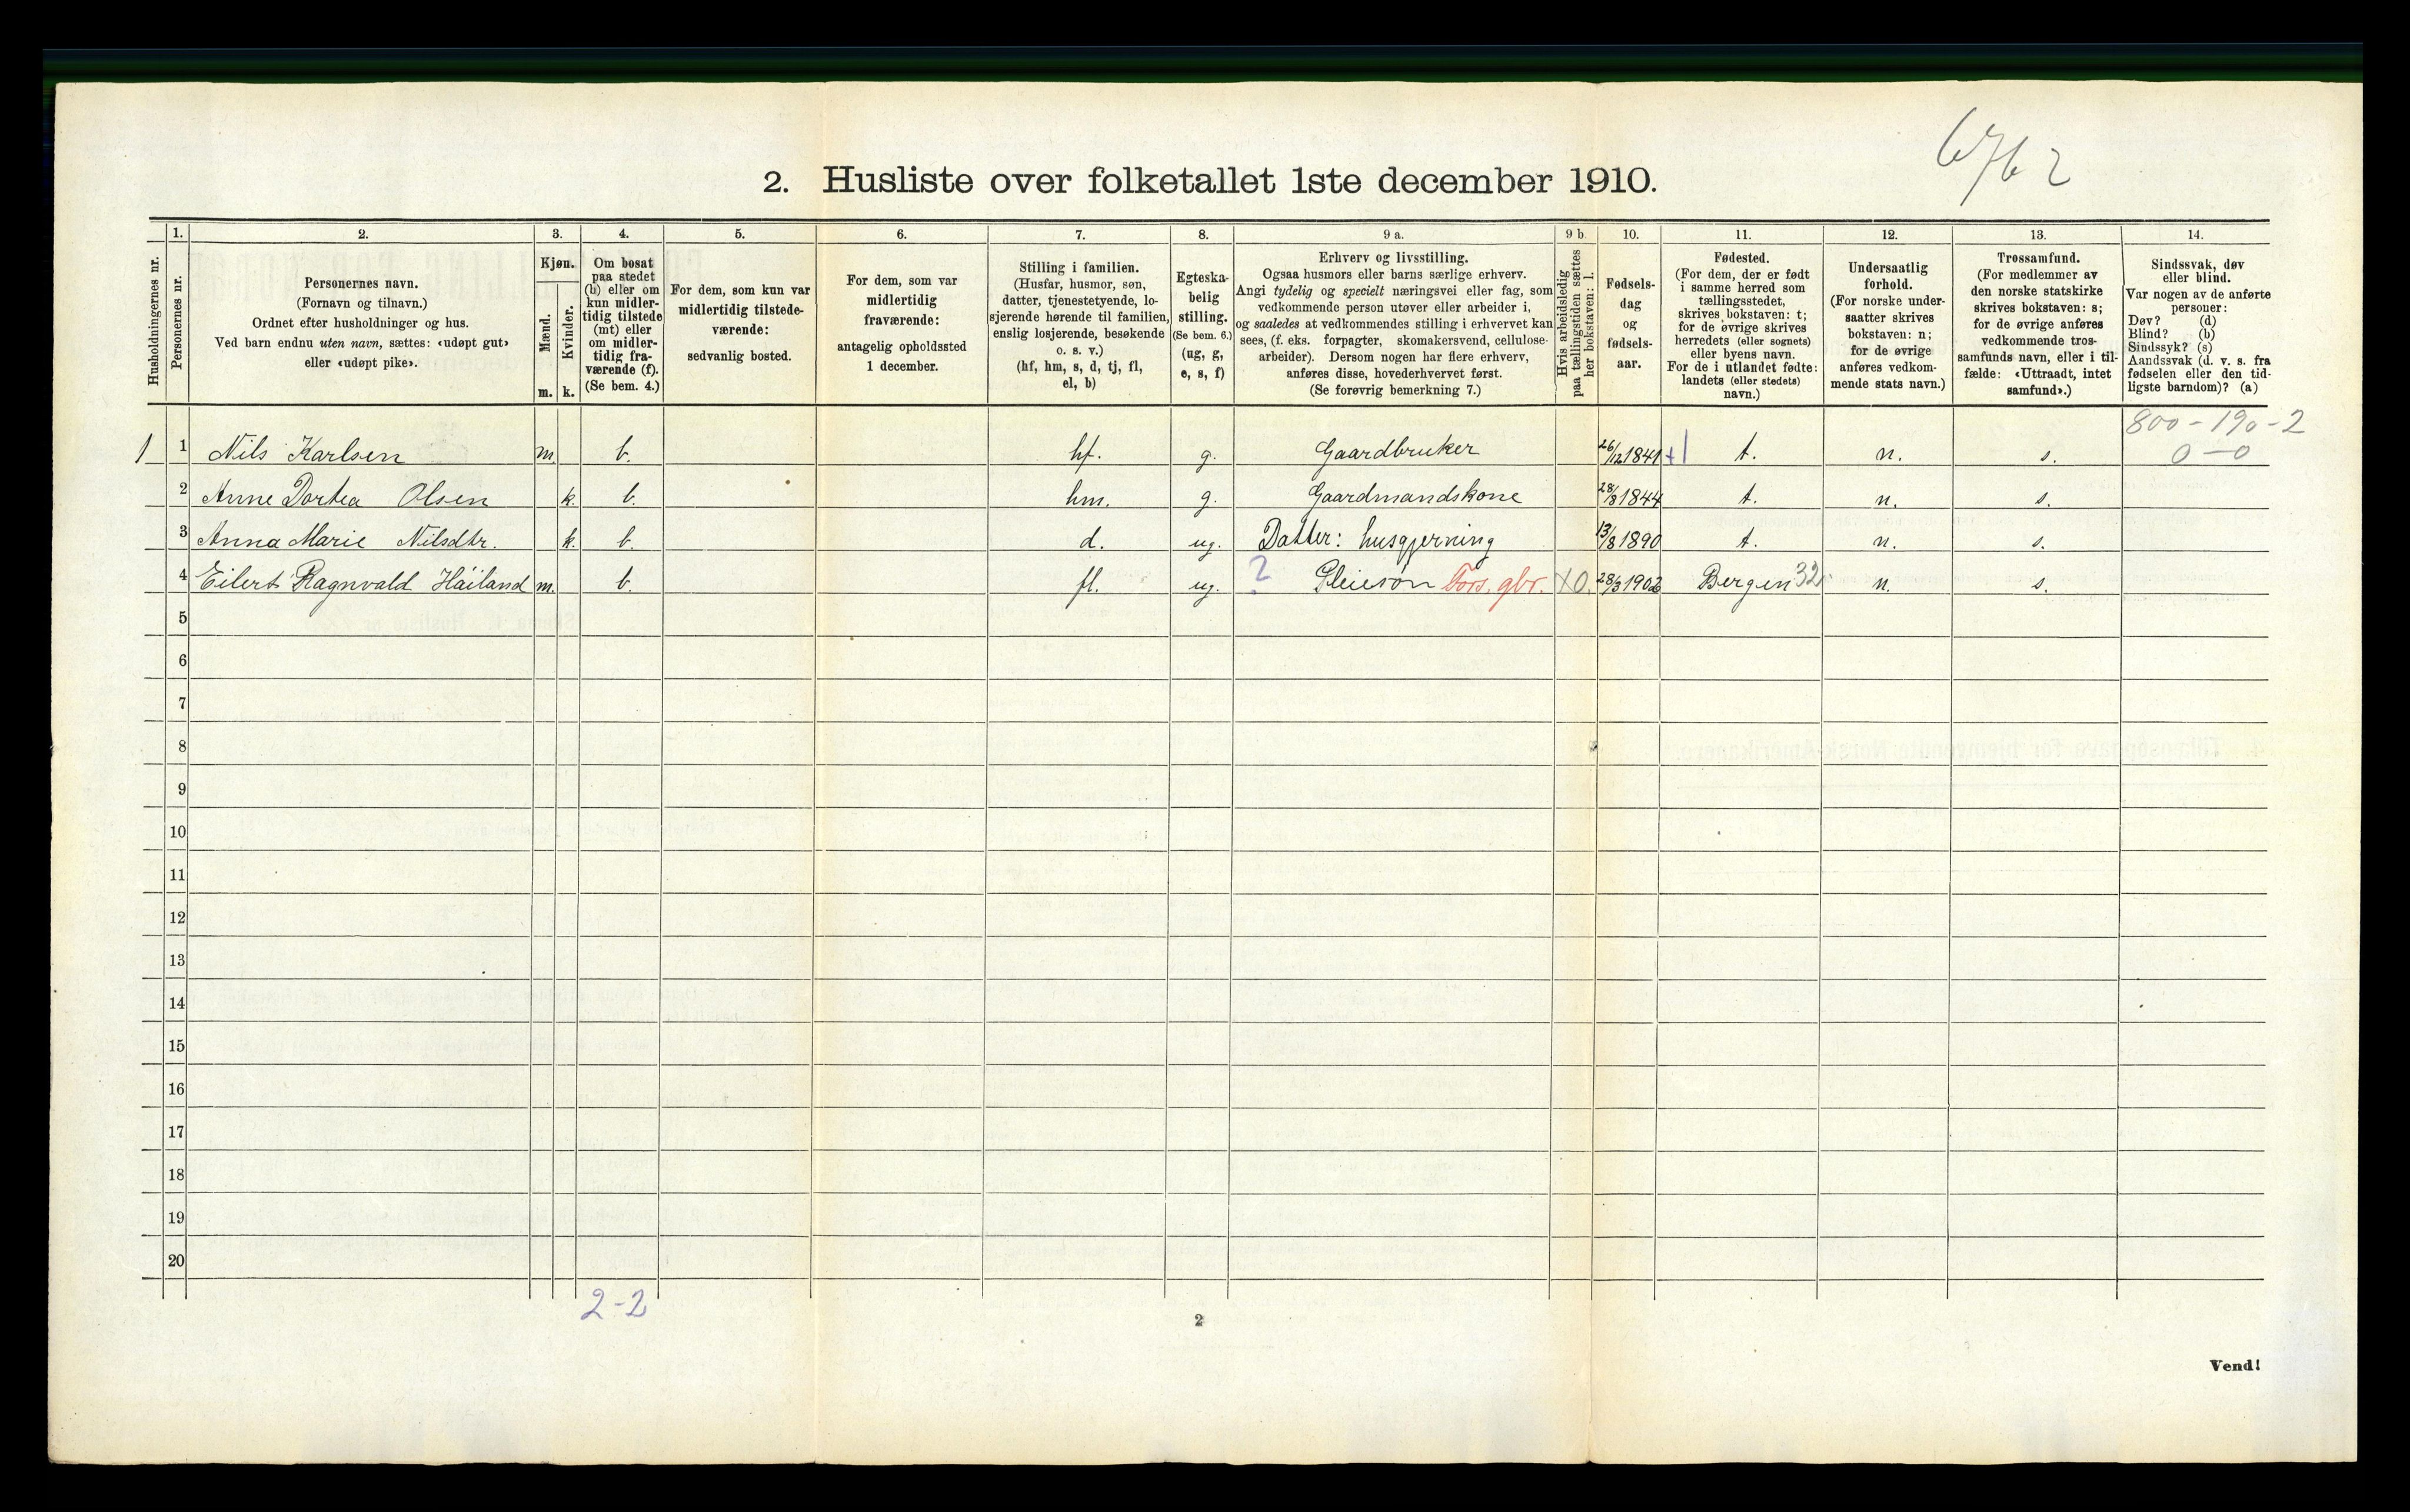 6762
2. Husliste over folketallet 1ste december 1910.
Husholdningernes nr.
1.
Personernes nr.
2.
Personernes navn.
(Fornavn og tilnavn.)
Ordnet efter husholdninger og hus.
Ved barn endnu uten navn, sættes: «udøpt gut»
eller «udøpt pike».
3.
Kjøn.
Mænd.
Kvinder.
m. k.
4.
Om bosat
paa stedet
(b) eller om
kun midler-
tidig tilstede
(mt) eller
om midler-
tidig fra-
værende (f).
(Se bem. 4.)
5.
For dem, som kun var
midlertidig tilstede-
værende:
sedvanlig bosted.
6.
For dem, som var
midlertidig
fraværende:
antagelig opholdssted
1 december.
7.
Stilling i familien.
(Husfar, husmor, søn,
datter, tjenestetyende, lo-
sjerende hørende til familien,
enslig losjerende, besøkende
o. s. v.)
(hf, hm, s, d, tj, fl,
el, b)
8.
Egteska-
belig
stilling.
(Se bem. 6.)
(ug, g,
e, s, f)
9 a.
Erhverv og livsstilling.
Ogsaa husmors eller barns særlige erhverv.
Angi tydelig og specielt næringsvei eller fag, som
vedkommende person utøver eller arbeider i,
og saaledes at vedkommendes stilling i erhvervet kan
sees, (f. eks. forpagter, skomakersvend, cellulose-
arbeider). Dersom nogen har flere erhverv,
anføres disse, hovederhvervet først.
(Se forøvrig bemerkning 7.)
9 b.
Hvis arbeidsledig
paa tællingstiden sættes
her bokstaven: l.
10.
Fødsels-
dag
og
fødsels-
aar.
11.
Fødested.
(For dem, der er født
i samme herred som
tællingsstedet,
skrives bokstaven: t;
for de øvrige skrives
herredets (eller sognets)
eller byens navn.
For de i utlandet fødte:
landets (eller stedets)
navn.)
12.
Undersaatlig
forhold.
(For norske under-
saatter skrives
bokstaven: n;
for de øvrige
anføres vedkom-
mende stats navn.)
13.
Trossamfund.
(For medlemmer av
den norske statskirke
skrives bokstaven: s;
for de øvrige anføres
vedkommende tros-
samfunds navn, eller i til-
fælde: «Uttraadt, intet
samfund».)
14.
Sindssvak, døv
eller blind.
Var nogen av de anførte
personer:
Døv? (d)
Blind? (b)
Sindssyk? (s)
Aandssvak (d. v. s. fra
fødselen eller den tid-
ligste barndom)? (a)
800-190-2
0-0
1 1 Nils Karlsen m. b. hf. g. Gaardbruker 26/12 1841 +1 t. n. s.
2 Anne Dortea Olsen k. b. hm. g. Gaardmandskone 28/8 1844 t. n. s.
3 Anna Marie Nilsdtr. k. b. d. ug. Datter: husgjerning 13/8 1890 t. n. s.
4 Eilert Ragnvald Håiland m. b. fl. ug. ? Pleiesøn Fors. gbr. X0. 28/3 1902 Bergen 32 n. s.
5
6
7
8
9
10
11
12
13
14
15
16
17
18
19
20
2-2
2
Vend!